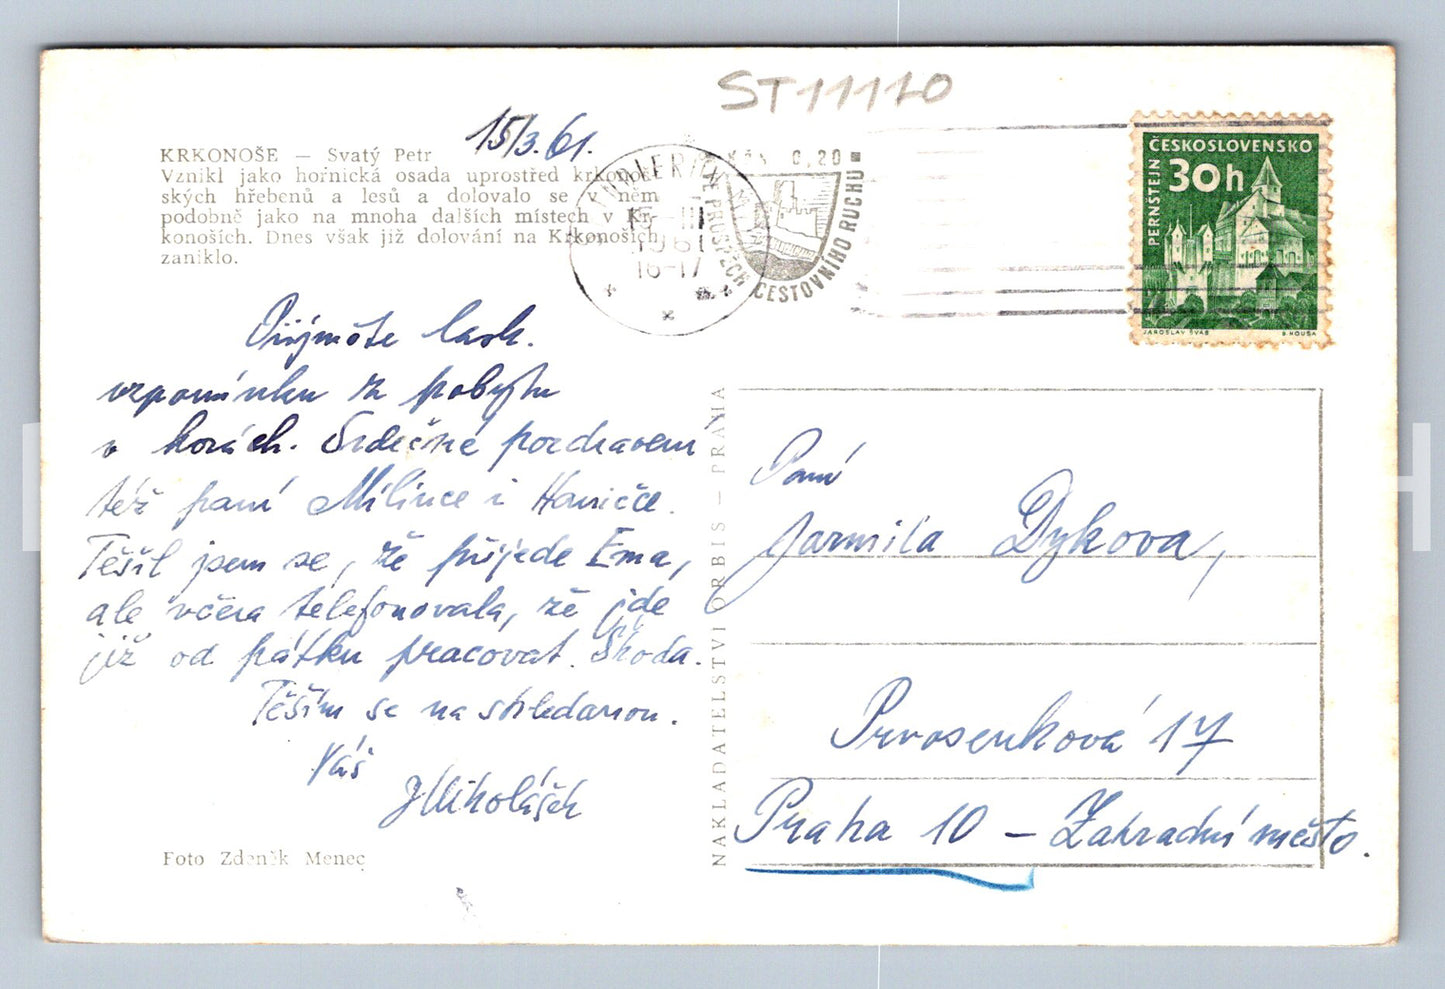 ST11110
15/3.61.
KRKONOŠE — Svatý Petr
Vznikl jako hornická osada uprostřed krkonoš-
ských hřebenů a lesů a dolovalo se v něm
podobně jako na mnoha dalších místech v Kr-
konoších. Dnes však již dolování na Krkonoších
zaniklo.
15-III
1961
16-17
KčS 0,20
VE PROSPĚCH CESTOVNÍHO RUCHU
ČESKOSLOVENSKO
30h
PERNŠTEJN
JAROSLAV ŠVÁB
B.HOUSA
Přijměte lask.
vzpomínku z pobytu
v horách. Srdečně pozdravem
též paní Milince i Haničce.
Těšil jsem se, že přijede Ema,
ale včera telefonovala, že jde
již od pátku pracovat. Škoda.
Těším se na shledanou.
Váš
JMikolášek
Foto Zdeněk Menec
NAKLADATELSTVÍ ORBIS — PRAHA
Paní
Jarmila Dykova,
Prvosenková 17
Praha 10 – Zahradní město.